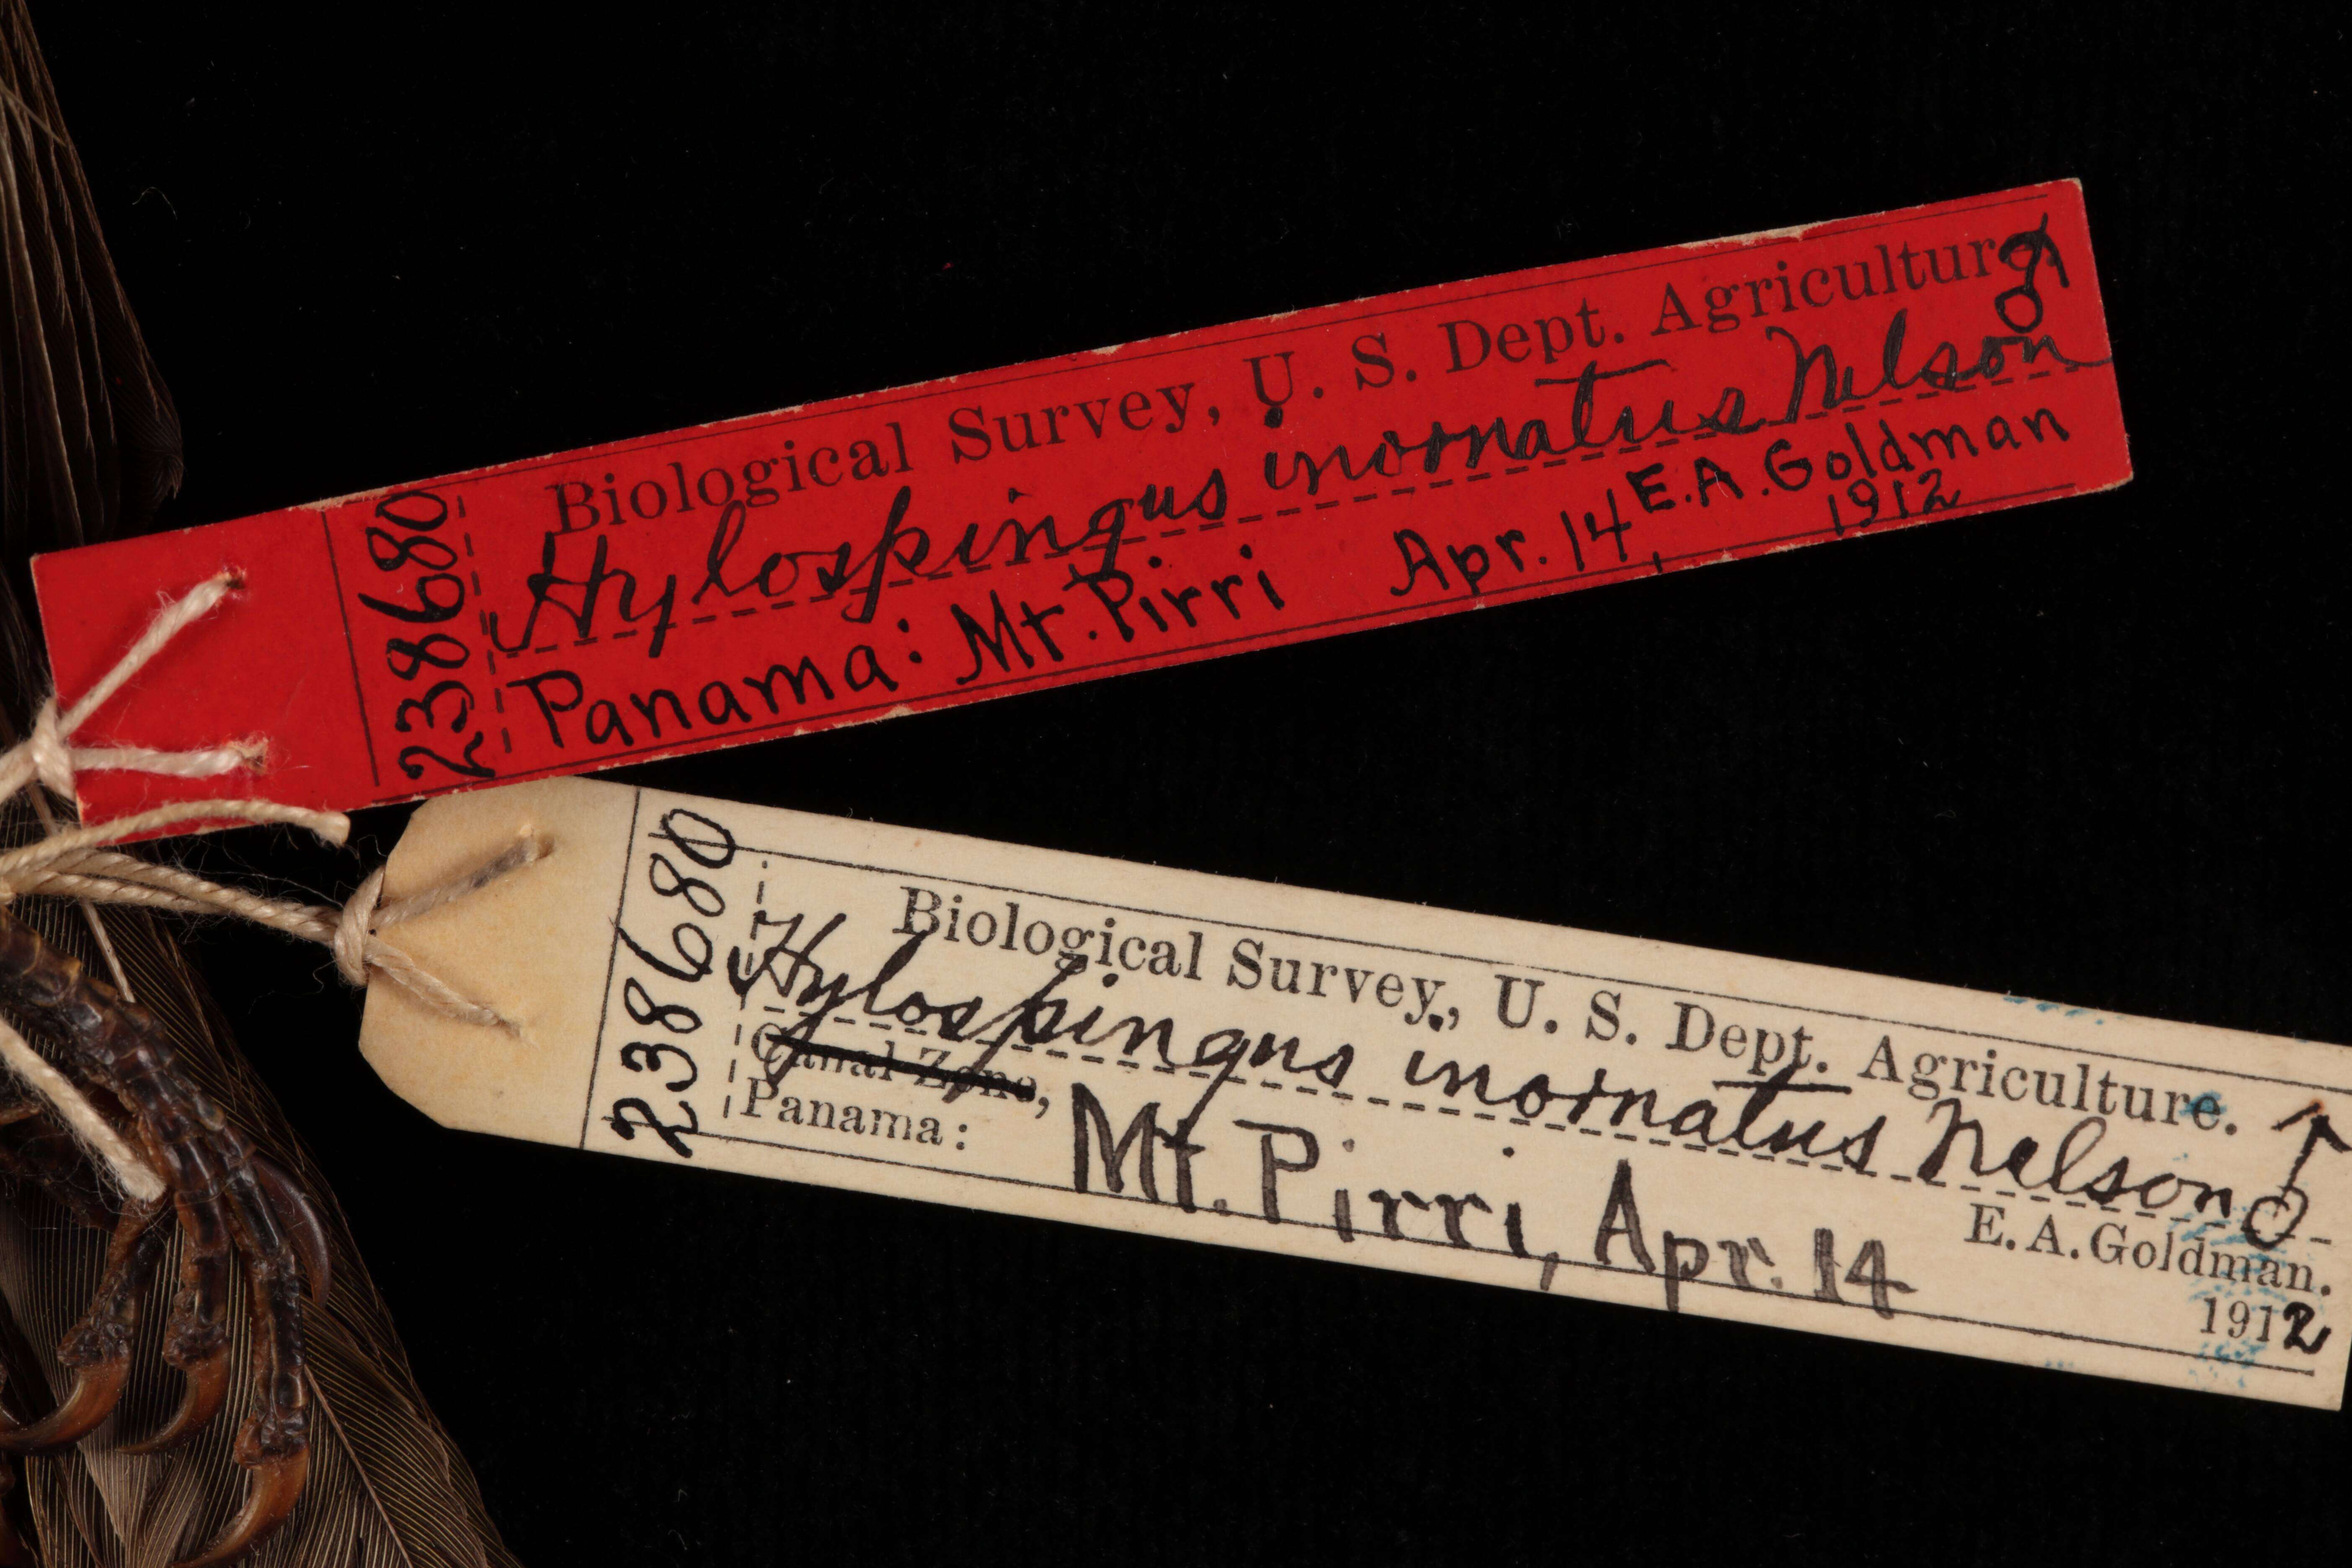 238680
Biological Survey, U. S. Dept. Agriculture.
♂
Hylospingus inornatus Nelson
E.A. Goldman
Panama: Mt. Pirri Apr. 14, 1912
238680
Biological Survey, U. S. Dept. Agriculture.
Hylospingus inornatus Nelson ♂
Canal Zone,
E. A. Goldman.
Panama: Mt. Pirri, Apr. 14
1912